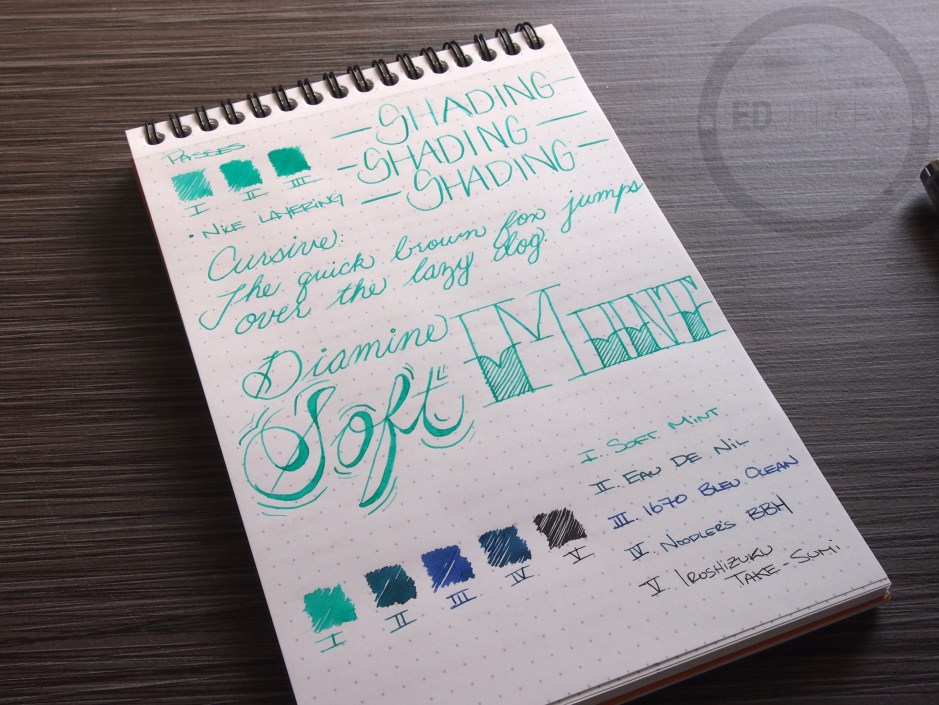 PASSES
I II III
• NICE LAYERING
— SHADING —
— SHADING —
— SHADING —
Cursive:
The quick brown fox jumps
over the lazy dog.
Diamine
Soft MINT
I. SOFT MINT
II. EAU DE NIL
III. 1670 BLEU OCEAN
IV. NOODLER'S BBH
V. IROSHIZUKU
TAKE-SUMI
I II III IV V